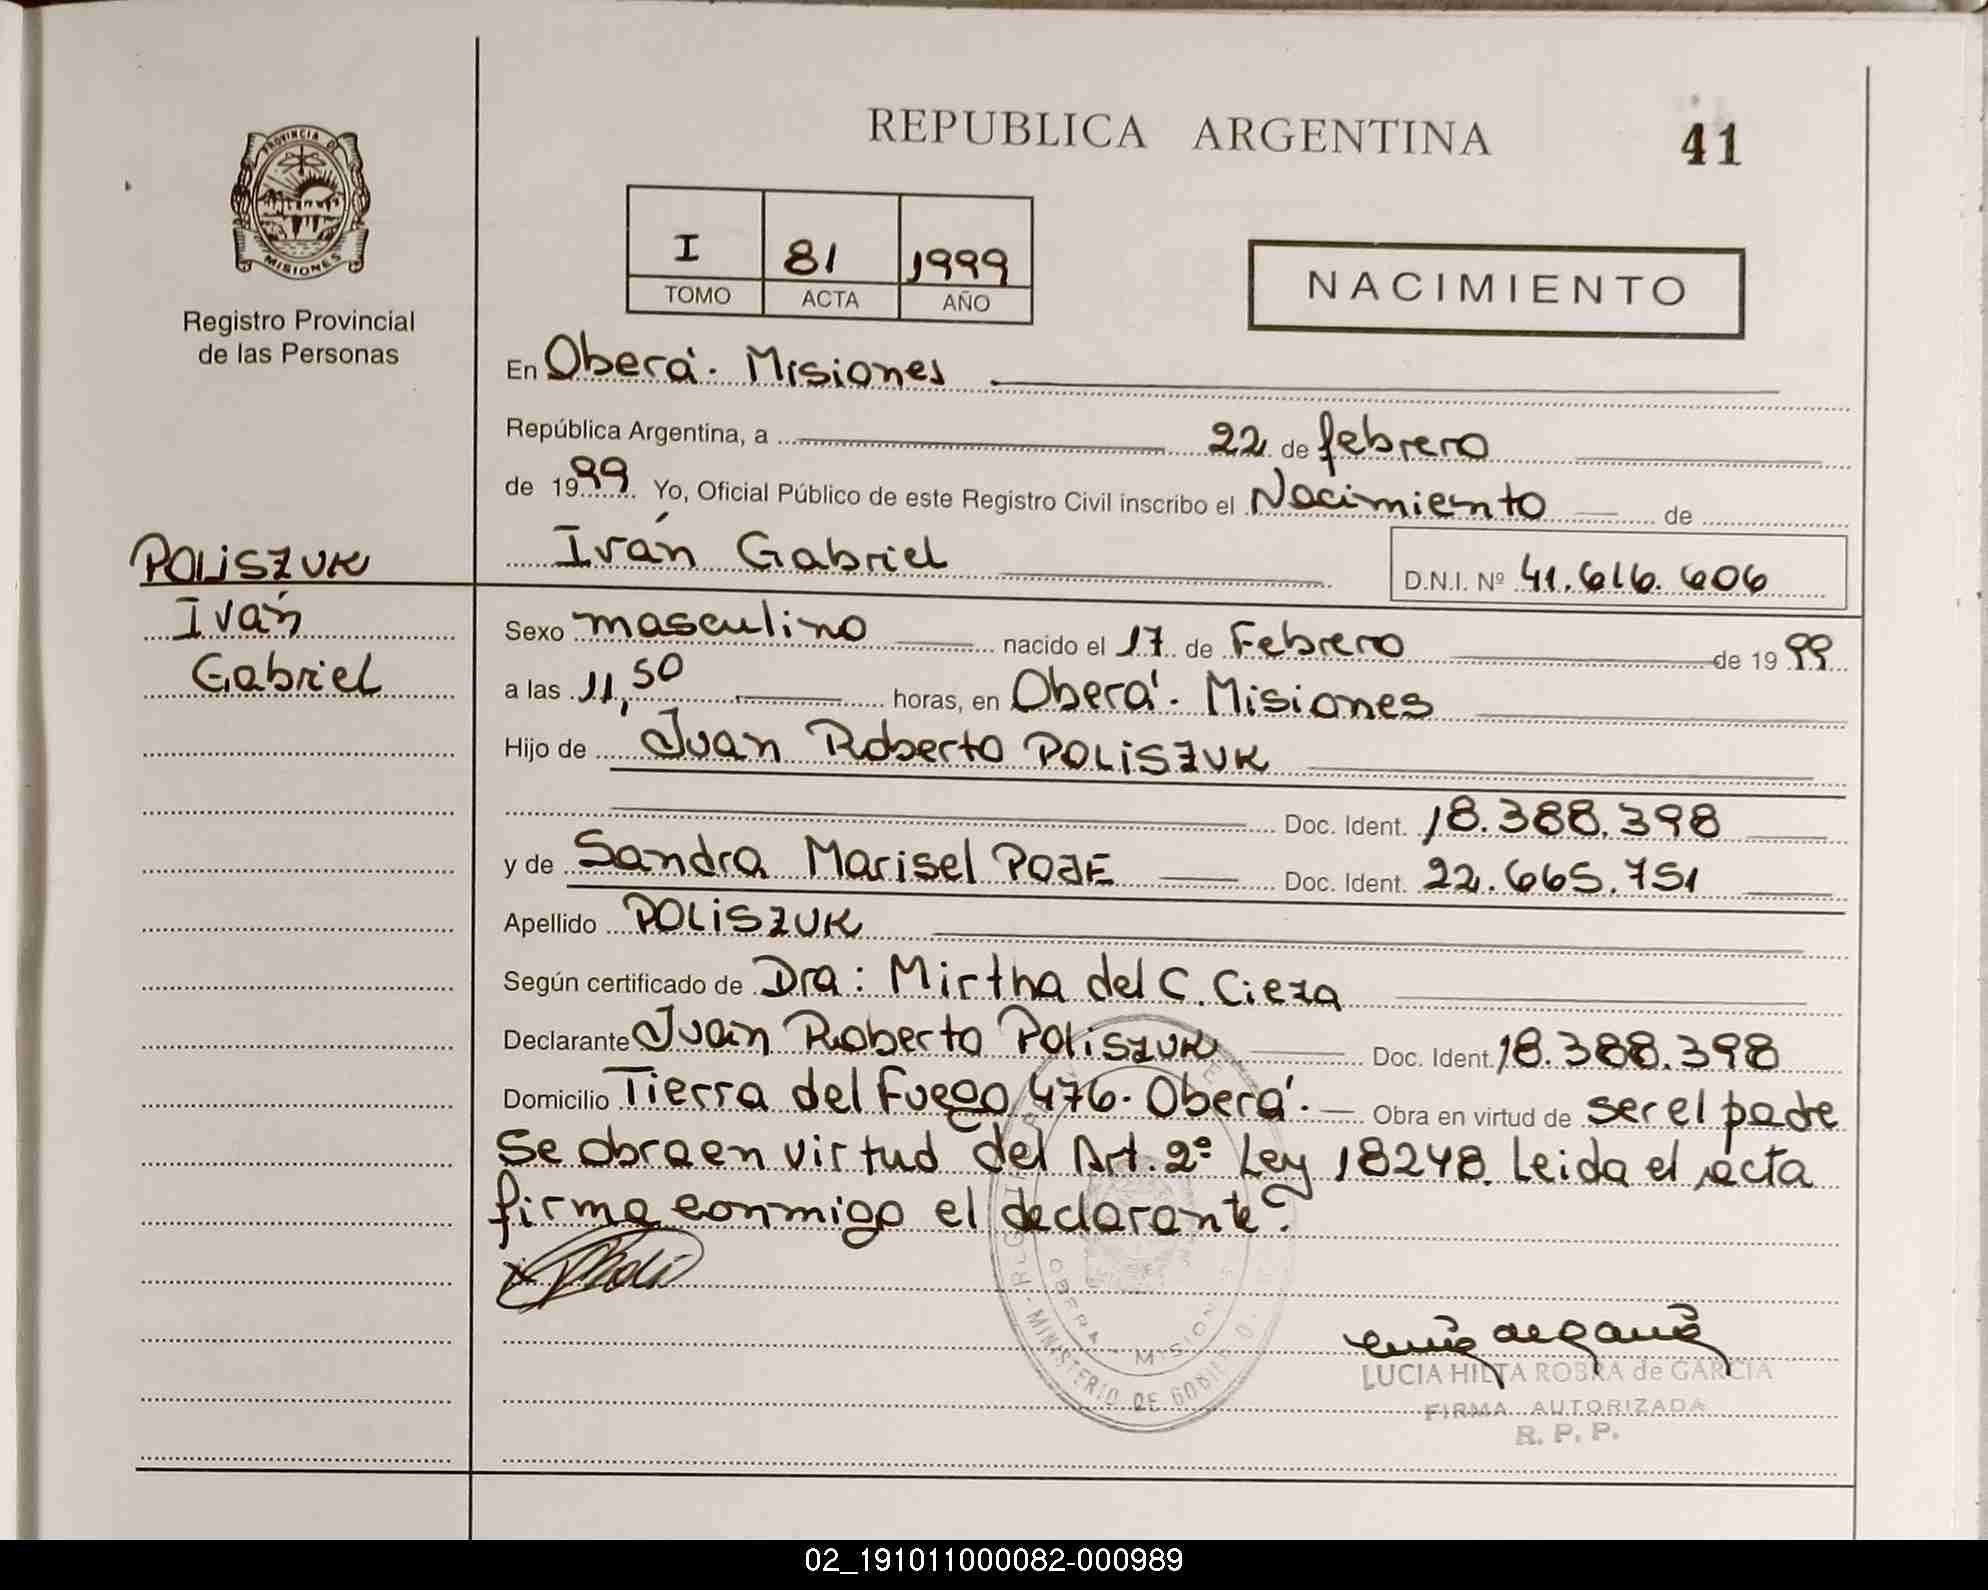 REPUBLICA ARGENTINA
41
PROVINCIA DE
MISIONES
Registro Provincial
de las Personas
I 81 1999
TOMO ACTA AÑO
NACIMIENTO
En Oberá. Misiones
República Argentina, a 22 de febrero
de 1999 Yo, Oficial Público de este Registro Civil inscribo el Nacimiento de
Iván Gabriel D.N.I. Nº 41.616.606
POLISZUK
Iván
Gabriel
Sexo masculino nacido el 17 de Febrero de 1999
a las 11,50 horas, en Oberá. Misiones
Hijo de Juan Roberto POLISZUK
Doc. Ident. 18.388.398
y de Sandra Marisel POJE Doc. Ident. 22.665.751
Apellido POLISZUK
Según certificado de Dra: Mirtha del C. Cieza
Declarante Juan Roberto Poliszuk Doc. Ident. 18.388.398
Domicilio Tierra del Fuego 476. Oberá. Obra en virtud de ser el padre
Se obra en virtud del Art. 2º Ley 18248. Leida el acta
firma conmigo el declarante.
OBERA MISIONES
MINISTERIO DE GOBIERNO
LUCIA HILTA ROBRA de GARCIA
FIRMA AUTORIZADA
R. P. P.
02_191011000082-000989